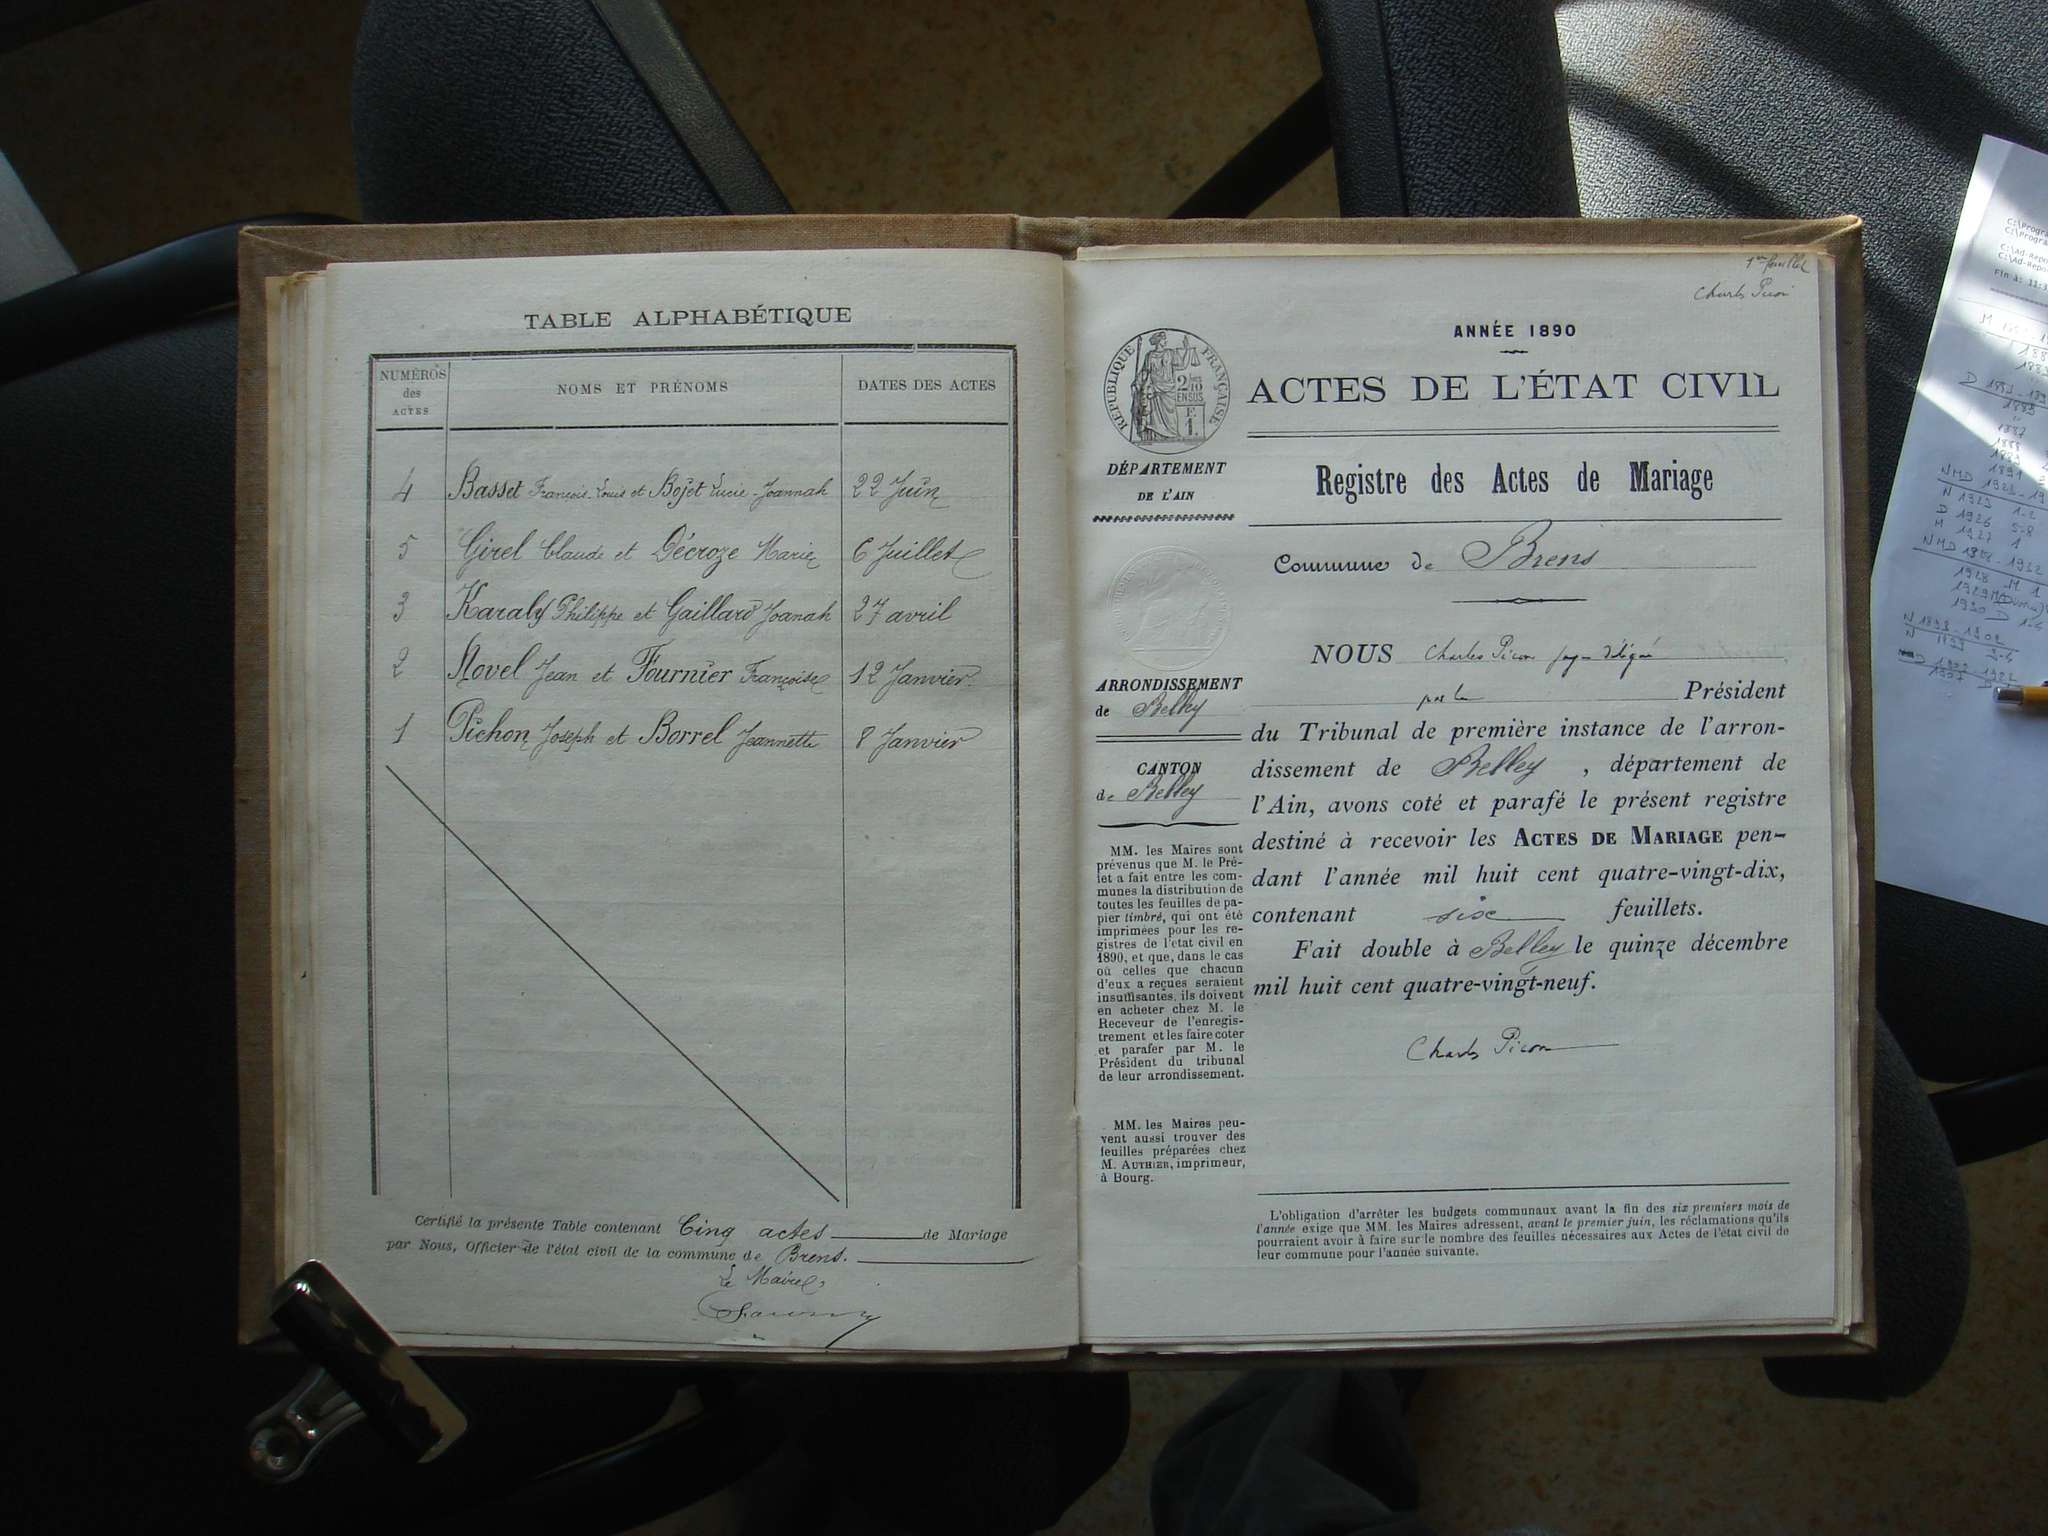 TABLE ALPHABÉTIQUE
NUMÉROS des ACTES
NOMS ET PRÉNOMS
DATES DES ACTES
4 Basset François-Louis et Bojet Lucie-Joannah 22 Juin
5 Girel Claude et Décroze Marie 6 Juillet
3 Karaly Philippe et Gaillard Joanah 27 avril
2 Novel Jean et Fournier Françoise 12 Janvier
1 Pichon Joseph et Borrel Jeannette 8 Janvier
Certifié la présente Table contenant Cinq actes de Mariage
par Nous, Officier de l'état civil de la commune de Brens.
Le Maire,
1er feuillet
Charles Picon
ANNÉE 1890
RÉPUBLIQUE FRANÇAISE
2/10
EN SUS
F.
1.
ACTES DE L'ÉTAT CIVIL
DÉPARTEMENT
DE L'AIN
Registre des Actes de Mariage
Commune de Brens
ARRONDISSEMENT
de Belley
CANTON
de Belley
MM. les Maires sont
prévenus que M. le Pré-
fet a fait entre les com-
munes la distribution de
toutes les feuilles de pa-
pier timbré, qui ont été
imprimées pour les re-
gistres de l'état civil en
1890, et que, dans le cas
où celles que chacun
d'eux a reçues seraient
insuffisantes, ils doivent
en acheter chez M. le
Receveur de l'enregis-
trement et les faire coter
et parafer par M. le
Président du tribunal
de leur arrondissement.
MM. les Maires peu-
vent aussi trouver des
feuilles préparées chez
M. AUTHIER, imprimeur,
à Bourg.
NOUS Charles Picon juge délégué
par le Président
du Tribunal de première instance de l'arron-
dissement de Belley, département de
l'Ain, avons coté et parafé le présent registre
destiné à recevoir les ACTES DE MARIAGE pen-
dant l'année mil huit cent quatre-vingt-dix,
contenant six feuillets.
Fait double à Belley le quinze décembre
mil huit cent quatre-vingt-neuf.
Charles Picon
L'obligation d'arrêter les budgets communaux avant la fin des six premiers mois de
l'année exige que MM. les Maires adressent, avant le premier juin, les réclamations qu'ils
pourraient avoir à faire sur le nombre des feuilles nécessaires aux Actes de l'état civil de
leur commune pour l'année suivante.
C:\Progra
C:\Progra
C:\Ad-Repo
C:\Ad-Repo
Fin à: 11:3
1887
1888
NMD 1923-19
N 1923 1-2
D 1926 5-8
M 1927 1